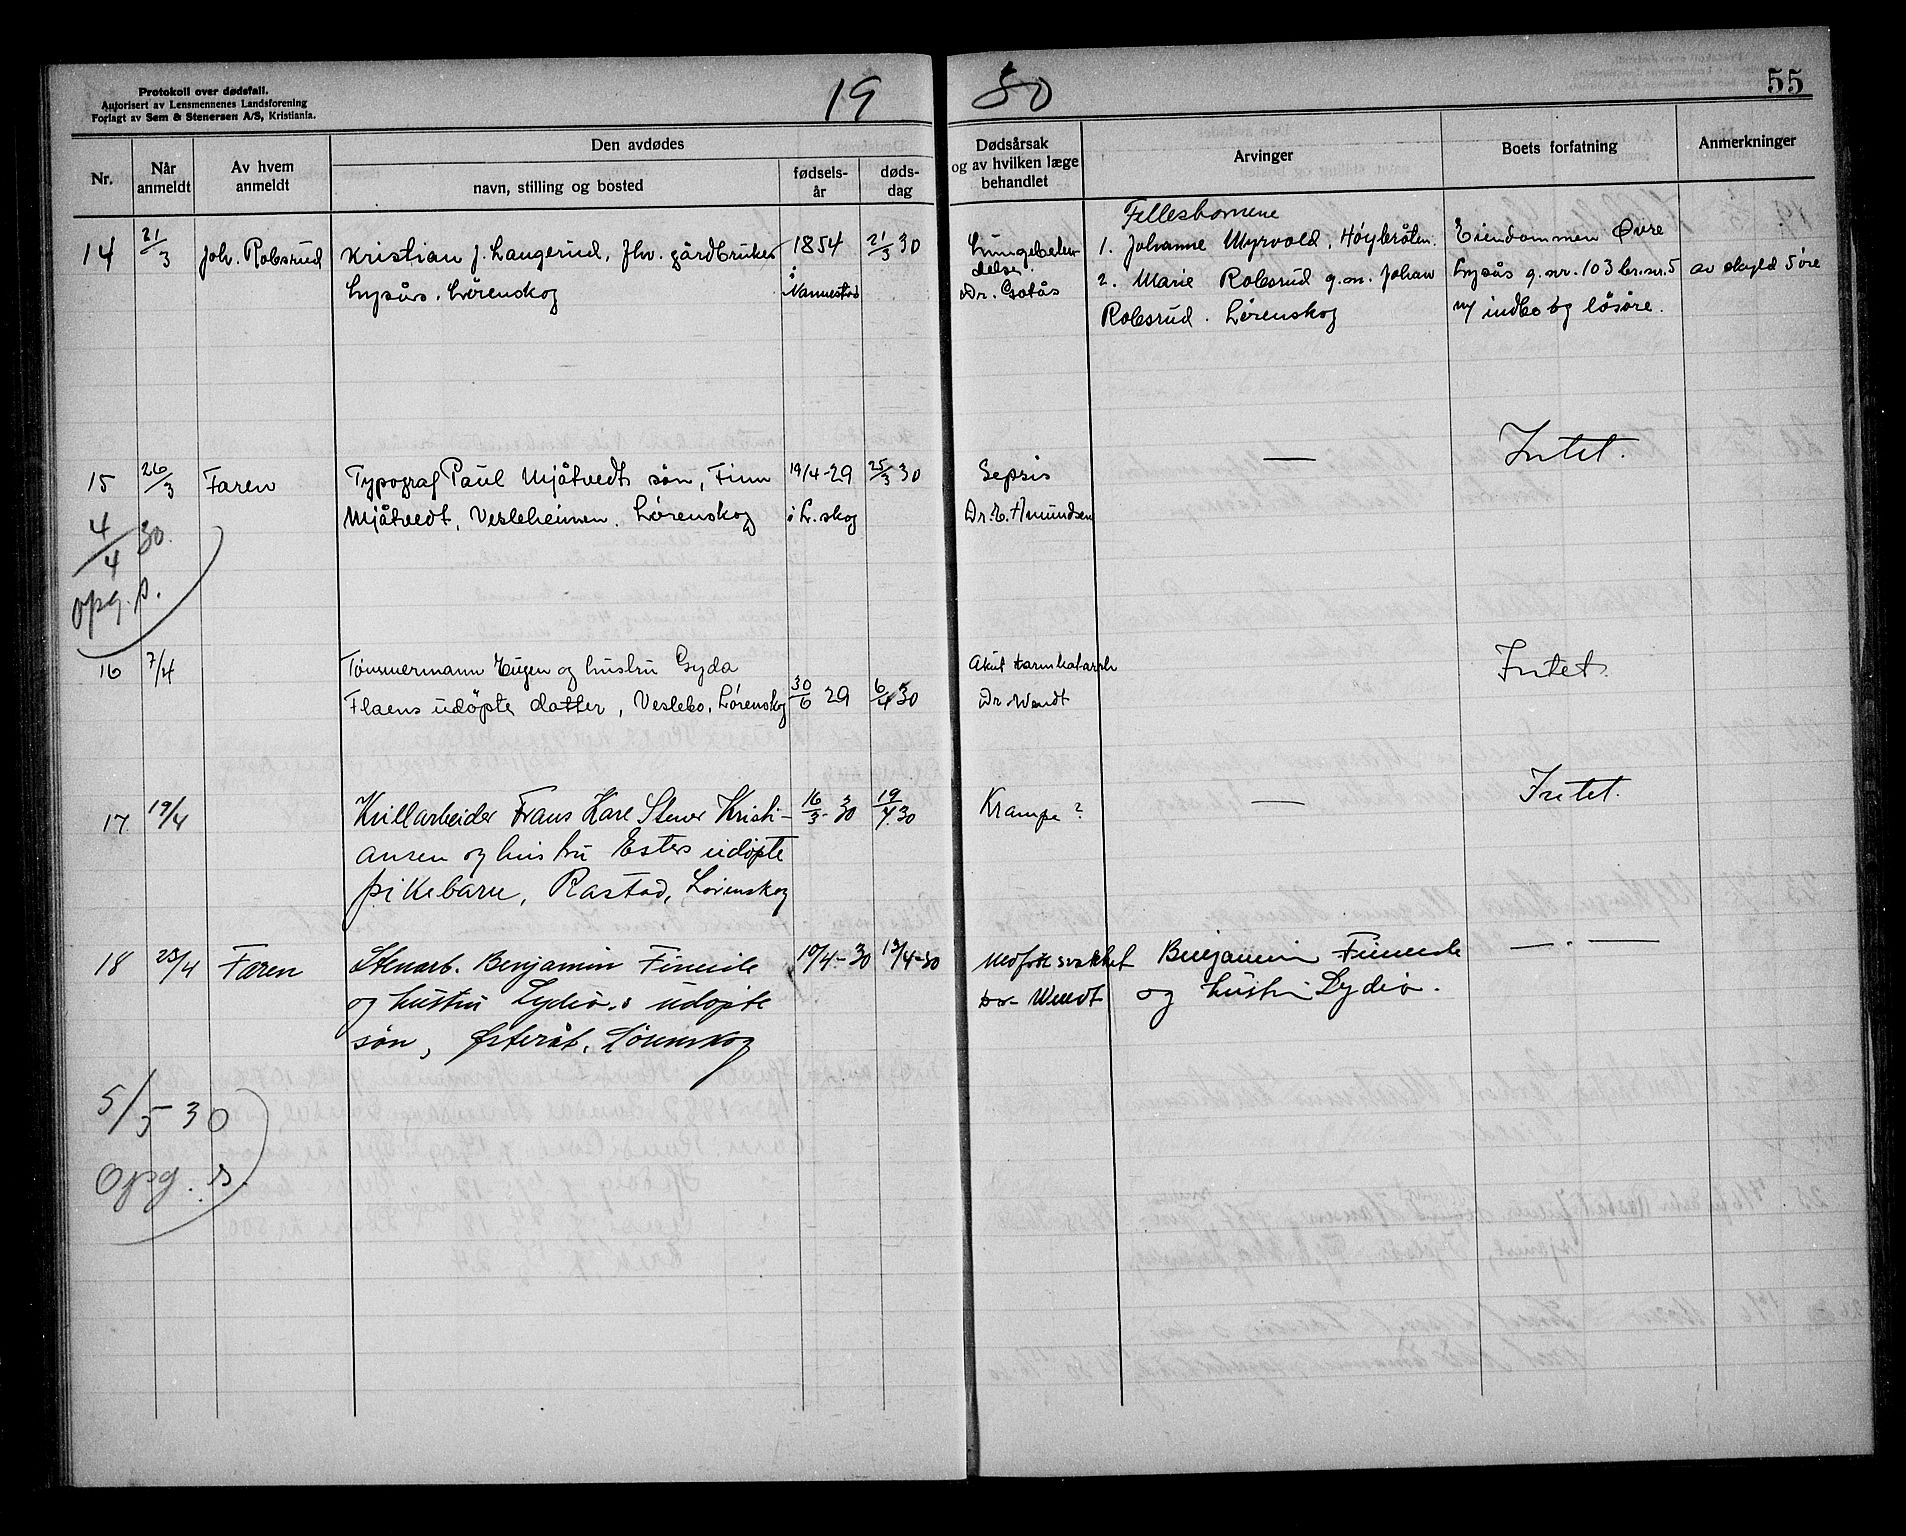 Protokoll over dødsfall.
Autorisert av Lensmennenes Landsforening
Forlagt av Sem & Stenersen A/S, Kristiania.
19 30
55
Nr.
Når anmeldt
Av hvem anmeldt
Den avdødes
navn, stilling og bosted
fødselsår
dødsdag
Dødsårsak og av hvilken læge behandlet
Arvinger
Boets forfatning
Anmerkninger
14 21/3 Joh. Robsrud Kristian J. Langerud, fhv. gårdbruker 1854 21/3 30
Lysås. Lørenskog i Nannestad
Lungebetendelse.
Dr. Gotås
Fellesbarnene
1. Johanne Myrvold, Høybråten.
2. Marie Robsrud g.m. Johan
Robsrud. Lørenskog
Eiendommen Øvre
Lysås g.nr. 103 br.nr. 5 av skyld 5 øre
m/ indbo og løsøre.
15 26/3 Faren Typograf Paul Mjåtvedts søn, Finn 19/4-29 25/3 30
Mjåtvedt, Vesleheimen. Lørenskog i L.skog
Sepsis
Dr. E. Amundsen
—
Intet.
4/4 30.
opg. s.
16 7/4 Tømmermann Eugen og hustru Gyda
Flaens udøpte datter, Veslebo, Lørenskog 30/6 29 6/4 30
Akut tarmkatarrh
Dr. Wendt
Intet.
17 19/4 Kvillarbeider Frans Kare Stener Kristi-
ansen og hustru Esters udøpte
pikebarn, Rastad, Lørenskog
16/3-30 19/4 30
Krampe?
—
Intet.
18 23/4 Faren Stenarb. Benjamin Fineide 10/4-30 13/4-30
og hustru Lydia,s udøpte
søn, Østeråt, Lørenskog
Medfødt svakhet
Dr Wendt
Benjamin Fineide
og hustru Lydia.
— . —
5/5 30
Opg. s.